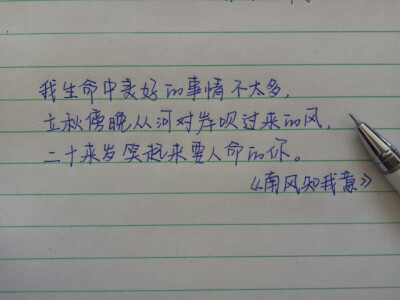 我生命中美好的事情不太多，
立秋傍晚从河对岸吹过来的风，
二十来岁笑起来要人命的你。
《南风知我意》